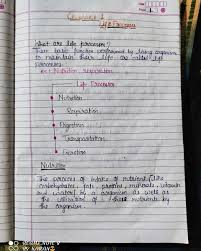 Life Processes
What are life processes?
The basic function performed by living organisms
to maintain their life are called life
processes.
ex:- Nutrition, respiration
Life Processes
Nutrition
Respiration
Digestion
Transportation
Excretion
Nutrition
The process of intake of nutrients like
carbohydrates, fats, proteins, minerals, vitamins
and water by a organism as well as
the utilisation of these nutrients by
the organism